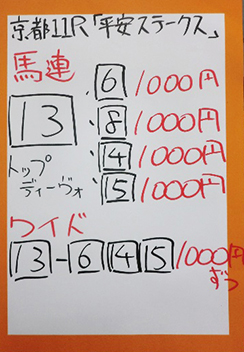 京都11R「平安ステークス」
馬連
13
トップ
ディーヴォ
6 1000円
8 1000円
4 1000円
15 1000円
ワイド
13-6 14 15 1000円
ずつ